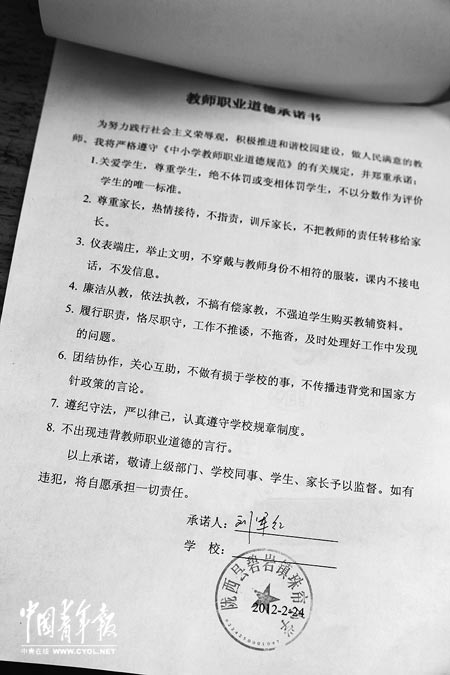 教师职业道德承诺书
为努力践行社会主义荣辱观，积极推进和谐校园建设，做人民满意的教
师，我将严格遵守《中小学教师职业道德规范》的有关规定，并郑重承诺：
1.关爱学生，尊重学生，绝不体罚或变相体罚学生，不以分数作为评价
学生的唯一标准。
2. 尊重家长，热情接待，不指责，训斥家长，不把教师的责任转移给家
长。
3. 仪表端庄，举止文明，不穿戴与教师身份不相符的服装，课内不接电
话，不发信息。
4. 廉洁从教，依法执教，不搞有偿家教，不强迫学生购买教辅资料。
5. 履行职责，恪尽职守，工作不推诿，不拖沓，及时处理好工作中发现
的问题。
6. 团结协作，关心互助，不做有损于学校的事，不传播违背党和国家方
针政策的言论。
7. 遵纪守法，严以律己，认真遵守学校规章制度。
8. 不出现违背教师职业道德的言行。
以上承诺，敬请上级部门、学校同事、学生、家长予以监督。如有
违犯，将自愿承担一切责任。
承诺人：刘军红
学 校：
陇西县碧岩镇珠帘
2012-2-24
中国青年报
中青在线 WWW.CYOL.NET